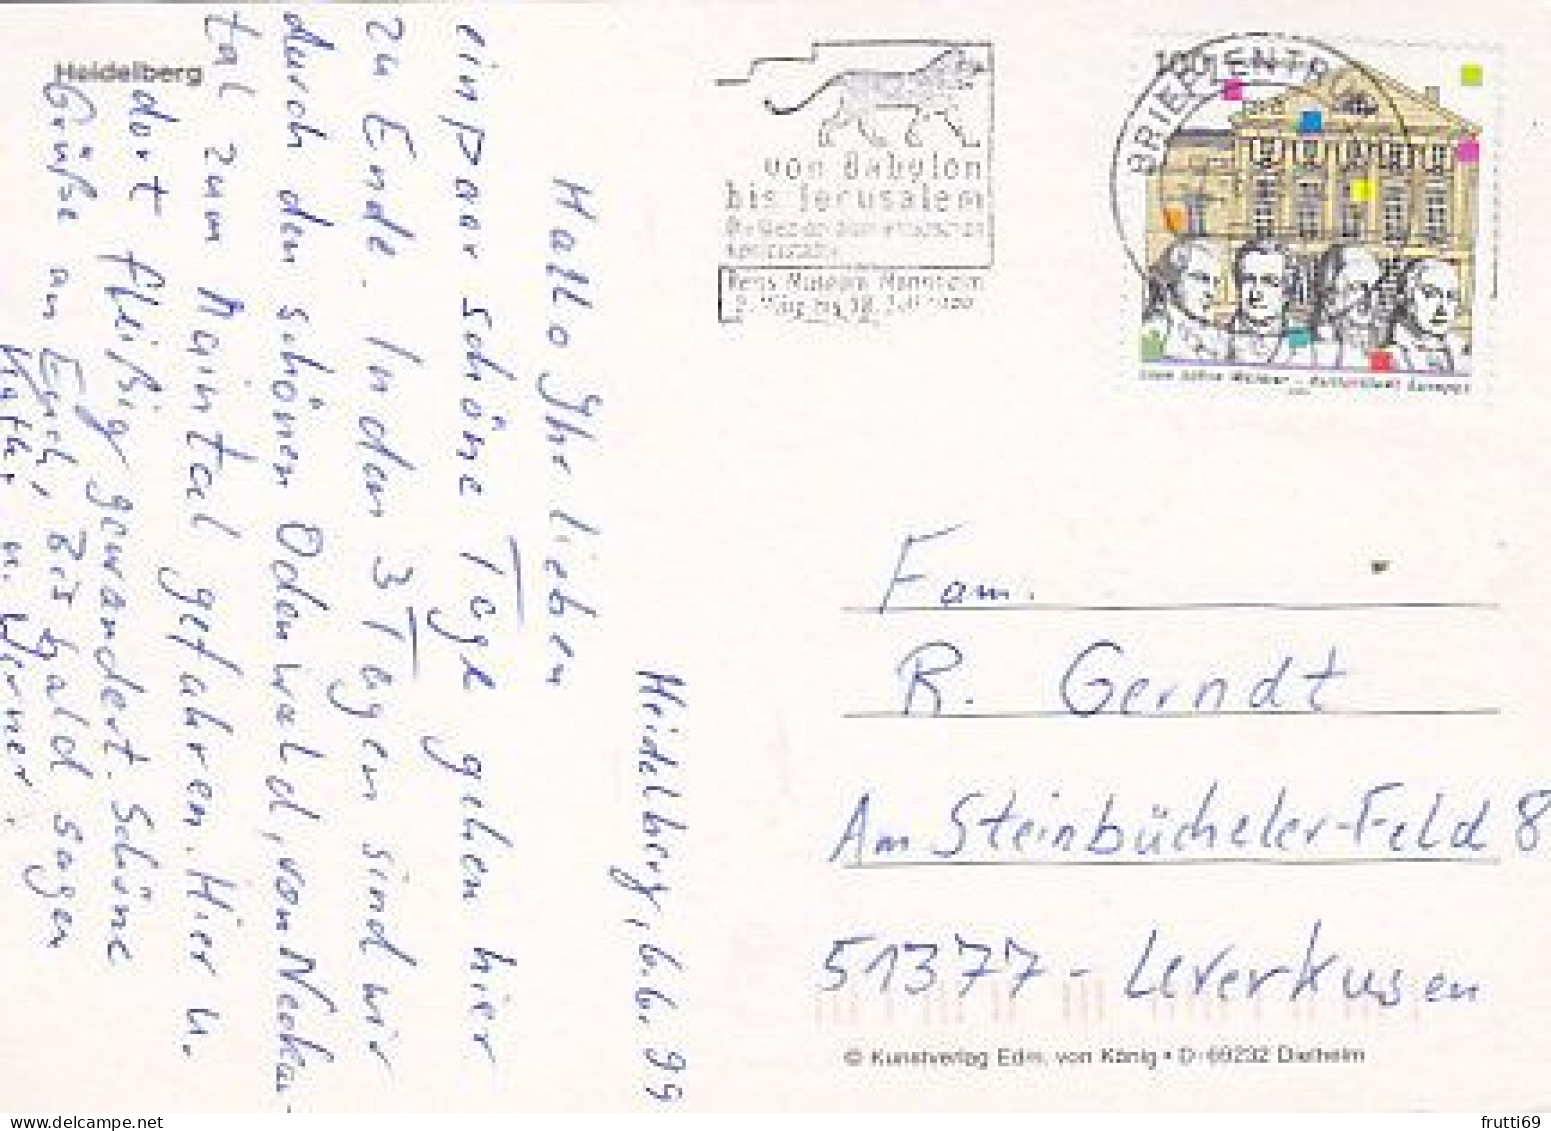 Heidelberg
Heidelberg, 6.6.99
Hallo Ihr lieben
ein paar schöne Tage gehen hier
zu Ende. In den 3 Tagen sind wir
durch den schönen Odenwald, von Neckar-
tal zum Maintal gefahren. Hier u.
dort fleißig gewandert. Schöne
Grüße an Euch, Bis bald sagen
u. Werner
BRIEFZENTR
von Babylon
bis Jerusalem
Reiss Museum Mannheim
100
Kulturstadt Europas
Fam.
R. Gerndt
Am Steinbücheler-Feld 8
51377 - Leverkusen
© Kunstverlag Edm. von König • D-69232 Dielheim
frutti69